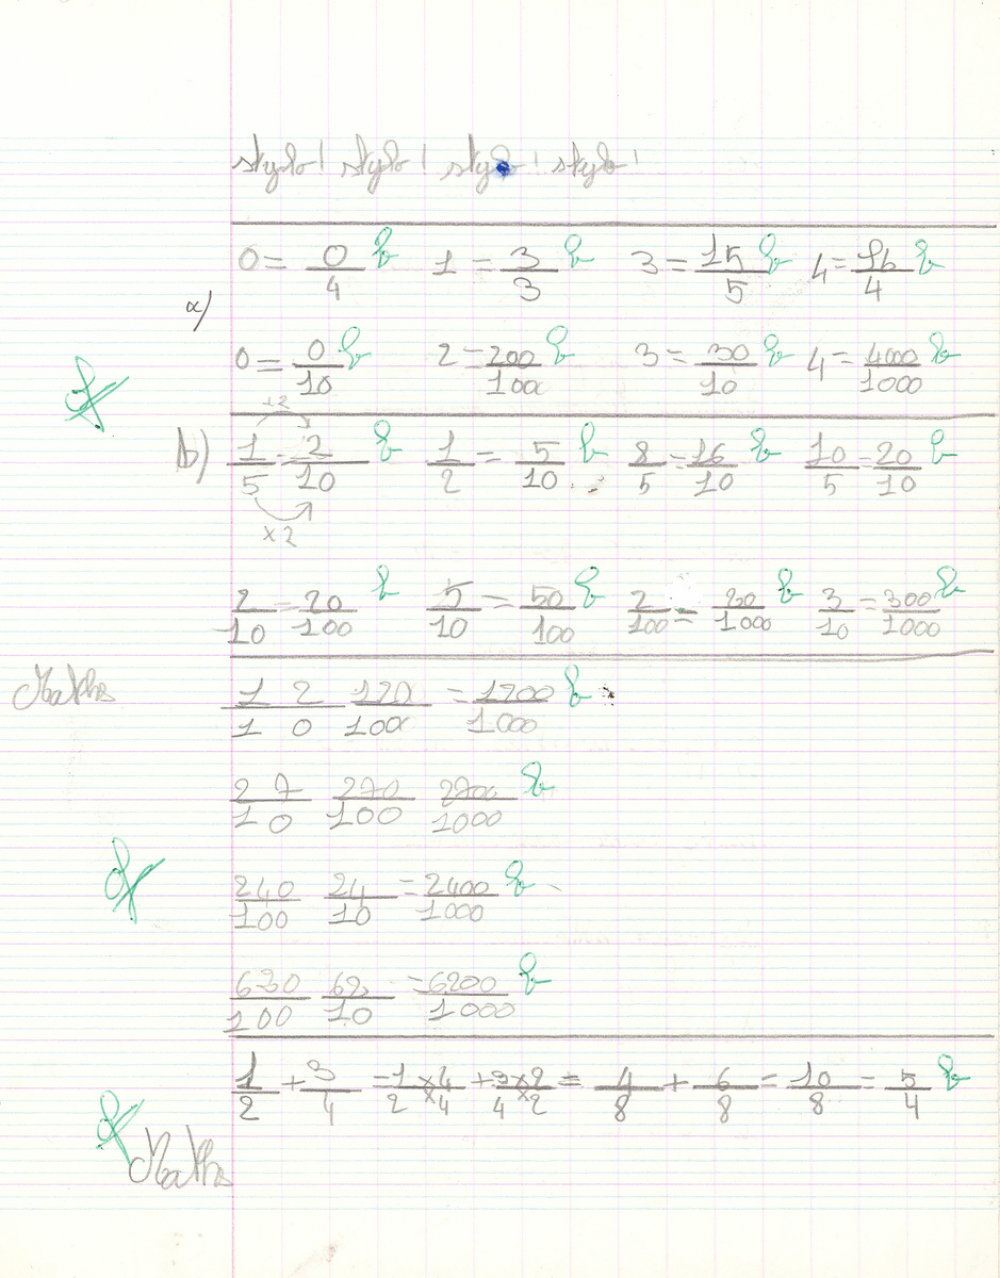 stylo! stylo! stylo! stylo!
0 = 0/4 b 1 = 3/3 b 3 = 15/5 b 4 = 16/4 b
a)
0 = 0/10 b 2 = 200/100 b 3 = 30/10 b 4 = 4000/1000 b
×2
b) 1/5 = 2/10 b 1/2 = 5/10 b 8/5 = 16/10 b 10/5 = 20/10 b
×2
2/10 = 20/100 b 5/10 = 50/100 b 2/100 = 20/1000 b 3/10 = 300/1000 b
Maths
12/10 120/100 = 1200/1000 b
27/10 270/100 2700/1000 b
240/100 24/10 = 2400/1000 b
620/100 62/10 = 6200/1000 b
1/2 + 3/4 = 1×4/2×4 + 3×2/4×2 = 4/8 + 6/8 = 10/8 = 5/4 b
Maths